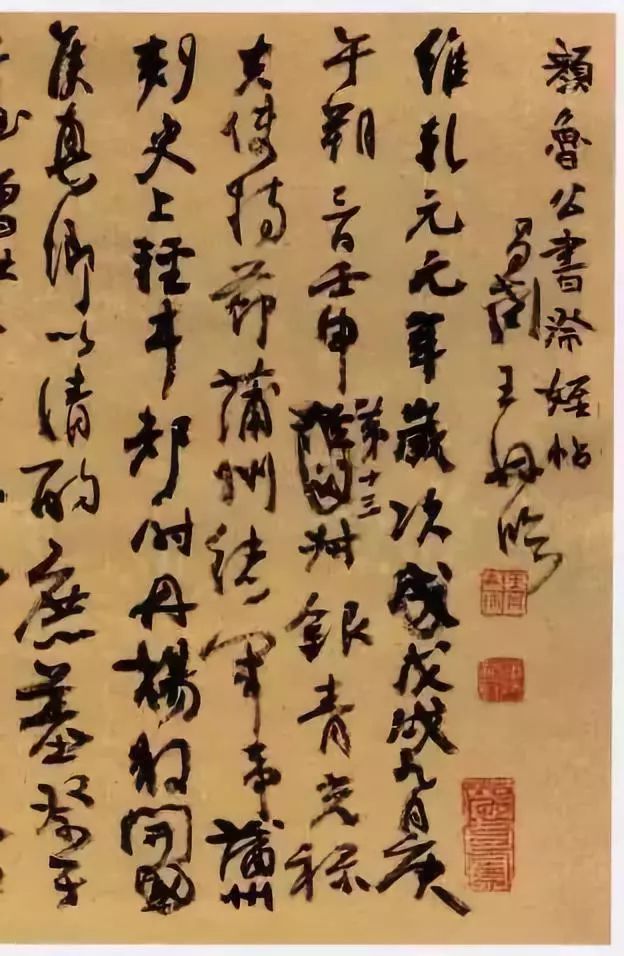 顏魯公書祭姪帖
王
臨
維乾元元年歲次戊戌九月庚
午朔三日壬申第十三叔銀青光祿
夫使持節蒲州諸軍事蒲州
刺史上輕車都尉丹楊縣開國
侯真卿以清酌庶羞祭于